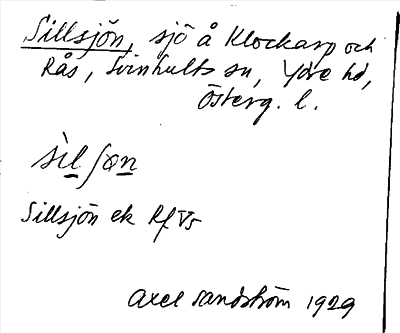 Sillsjön, sjö å Klockarp och
Rås, Svinhults sn, Ydre hd,
Österg. l.
sìlʃøn
Sillsjön ek Rf V5
Axel Sandström 1929